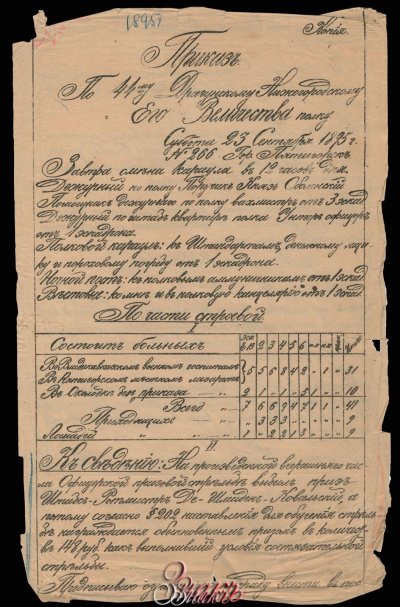 1895
Копія.
Приказъ
По 44му Драгунскому Нижегородскому
Его Величества полку.
Суббота 23 Сентября 1895 г.
№ 266 Гор. Пятигорскъ
Завтра смѣна караула въ 12 часовъ дня.
Дежурный по полку Поручикъ Князь
Помощникъ дежурнаго по полку вахмистръ отъ 3 эскад.
Дежурный по штабъ квартирѣ полка Унтеръ офицеръ
отъ 1 эскадрона.
Полковой караулъ: къ Штандартамъ, денежному ящи
ку и пороховому погребу отъ 1 эскадрона.
Ночной постъ: къ полковымъ отъ 1 эскад.
Вѣстовые: конн. и въ полковую канцелярію отъ 1 эскад.
По части строевой
I
Состоитъ больныхъ 1 2 3 4 5 6
Во Владикавказскомъ военномъ госпиталѣ
Въ Пятигорскомъ мѣстномъ лазаретѣ 6 5 6 8 4 2 1 31
Въ Слободкѣ 2 1 1 5 1 10
Всего 7 6 6 9 7 1 41
Приходящихъ 1 2 3 2 1 9
Лошадей 1 2 2 1 3 9
II
Къ свѣдѣнію: На произведенной вчерашняго чис
ла Офицерской призовой стрѣльбѣ выбилъ призъ
Штабсъ-Ротмистръ Де-Шмидтъ-Ковальскій, а
потому согласно § 202 наставленія для обученія стрѣль
бѣ награждается обыкновеннымъ призомъ въ количест
вѣ 148 руб. какъ выполнившій условія состязательной
стрѣльбы.
Предписываю внести въ
Знаки